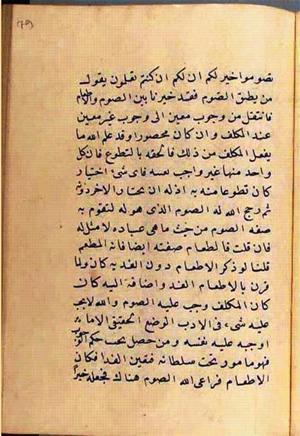 تصوموا خير لكم ان لكم ان كنتم تعلون يقول
من يطق الصوم فقد خيرنا بين الصوم والاطعام
فانتقل من وجوب معين الى وجوب غير معين
عند المكلف وان كان محصورا وقد علم الله ما
يفعل المكلف من ذلك فالحقه بالتطوع فان كل
واحد منها غير واجب بعينه فاى شىء اختار
كان تطوعا منه به اذ له ان يختار الاخر دونه
ثم رجح الله له الصوم الذى هو له لتقوم به
صفه الصوم من حيث ما هى عباده لا مثل له
فان قلت فالطعام صفته ايضا فانه المطعم
قلنا لو ذكر الاطعام دون الفديه كان ولما
قرن بالاطعام الفدا واضافه اليه كان
كان المكلف وجب عليه الصوم والله لا يجب
عليه شىء فى الادب الوضع الحقيقى الا ما
اوجبه عليه نفسه ومن حصل تحت حكم الوجوب
فهو مامور تحت سلطانه فتعين الفدا فكان
الاطعام فراعى الله الصوم هناك فجعله خيرا